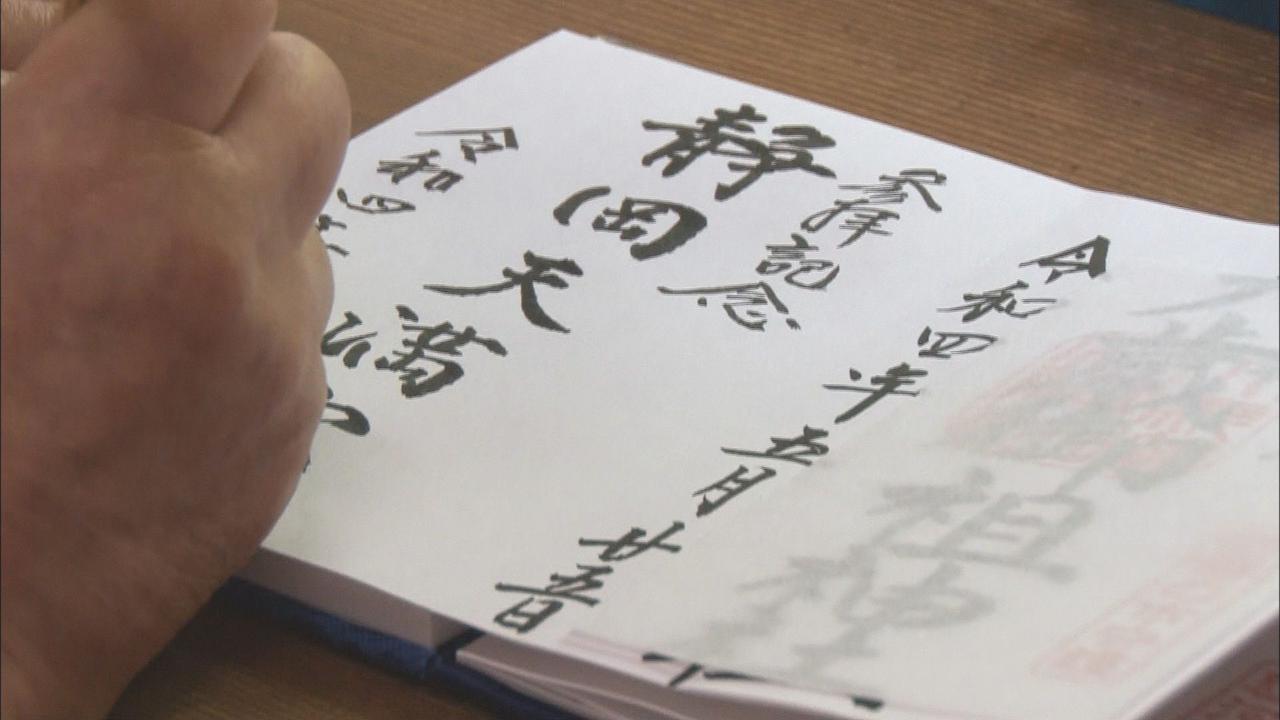 祖神社
令和四年五月廿五日
参拝記念
静岡天満
令和四年